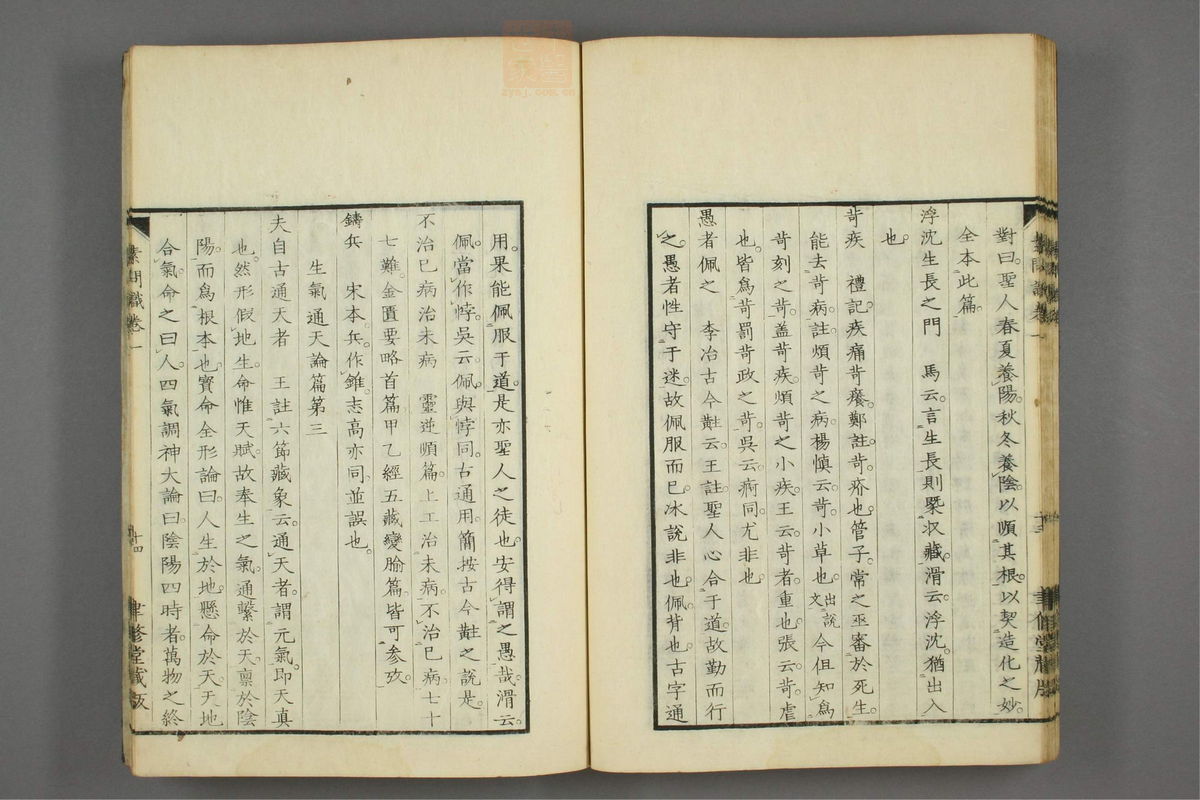 對曰。聖人春夏養陽。秋冬養陰。以順其根。以契造化之妙。
全本此篇。
浮沈生長之門　馬云。言生長則槩収藏。滑云。浮沈。猶出入
也。
苛疾　禮記。疾痛苛癢。鄭註。苛。疥也。管子。常之巫。審於死生。
能去苛病。註。煩苛之病。楊慎云。苛。小草也。出說文今但知爲
苛刻之苛。盖苛疾。煩苛之小疾。王云。苛者重也。張云。苛虐
也。皆爲苛罰苛政之苛。吳云。痾同。尤非也。
愚者佩之　李冶古今黈云。王註。聖人心合于道。故勤而行
之。愚者性守于迷。故佩服而已。冰說非也。佩。背也。古字通
用。果能佩服于道。是亦聖人之徒也。安得謂之愚哉。滑云。
佩。當作悖。吳云。佩。與悖同。古通用。簡按古今黈之說是。
不治已病治未病　靈逆順篇。上工治未病。不治已病。七十
七難。金匱要略首篇。甲乙經五藏變腧篇。皆可參攷。
鑄兵　宋本。兵。作錐。志高亦同。並誤也。
生氣通天論篇第三
夫自古通天者　王註六節藏象云。通天者。謂元氣。即天真
也。然形假地生。命惟天賦。故奉生之氣。通繫於天。稟於陰
陽。而爲根本也。寶命全形論曰。人生於地。懸命於天。天地
合氣。命之曰人。四氣調神大論曰。陰陽四時者。萬物之終
素問識卷一
十四
聿修堂藏版